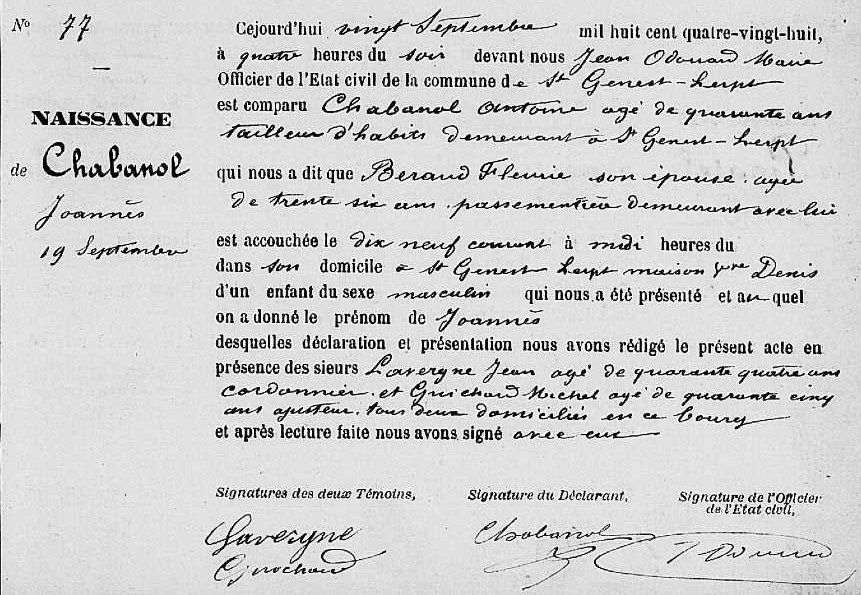 N° 77
NAISSANCE
de Chabanol
Joannès
19 Septembre
Cejourd'hui vingt Septembre mil huit cent quatre-vingt-huit,
à quatre heures du soir devant nous Jean Odouard Maire
Officier de l'Etat civil de la commune de St Genest-Lerpt
est comparu Chabanol Antoine agé de quarante ans
tailleur d'habits demeurant à St Genest-Lerpt
qui nous a dit que Béraud Fleurie son épouse agée
de trente six ans, passementière demeurant avec lui
est accouchée le dix neuf courant à midi heures du
dans son domicile à St Genest Lerpt maison Denis
d'un enfant du sexe masculin qui nous a été présenté et au quel
on a donné le prénom de Joannès
desquelles déclaration et présentation nous avons rédigé le présent acte en
présence des sieurs Lavergne Jean agé de quarante quatre ans
cordonnier, et Guichard Michel agé de quarante cinq
ans ajusteur, tous deux domiciliés en ce bourg
et après lecture faite nous avons signé avec eux
Signatures des deux Témoins,
Signature du Déclarant,
Signature de l'Officier
de l'Etat civil,
Lavergne
Guichard
Chabanol